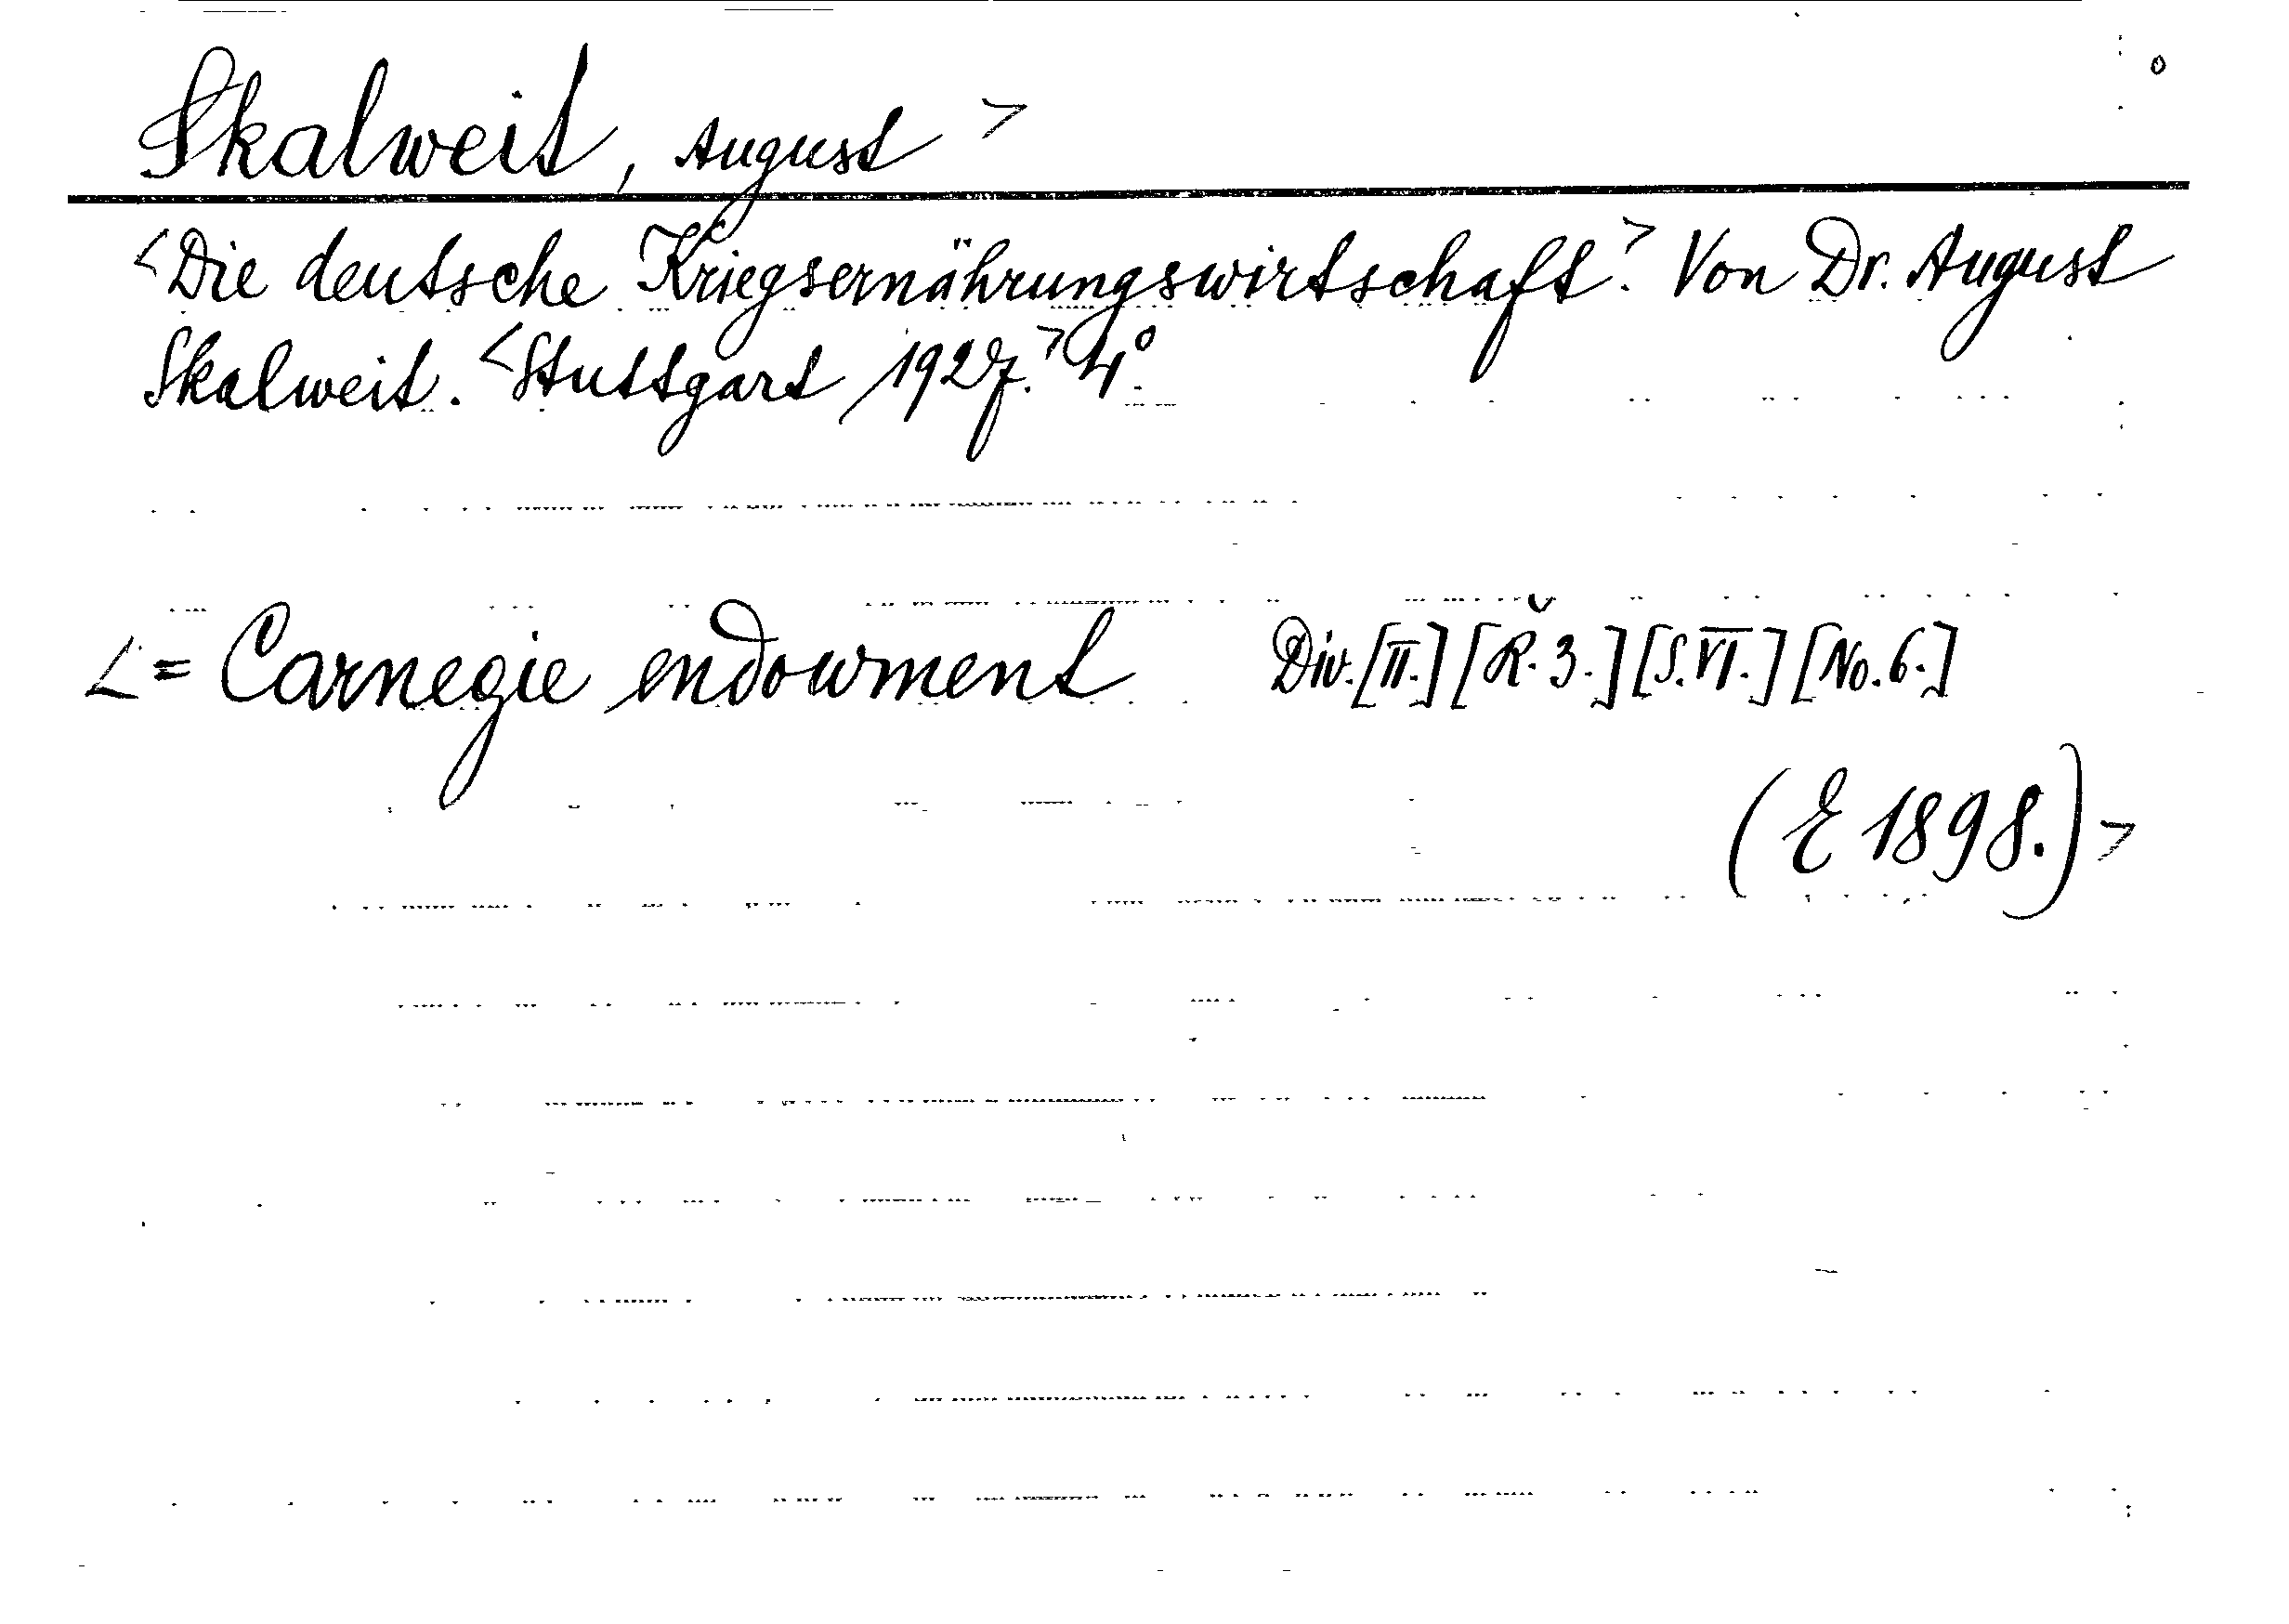 Skalweit, August >
<Die deutsche Kriegsernährungswirtschaft.> Von Dr. August
Skalweit. <Stuttgart 1927.> 4°.
<= Carnegie endowment Div.[II.] [Ř.3.] [S.VI.] [No.6.]
(E 1898.) >